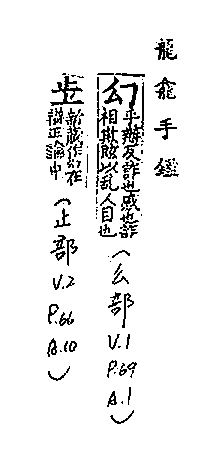 龍龕手鑑
幻
乎辦反詐也惑也詐
相欺眩以乱人目也
(幺部 V.1 P.69 A.1)
新藏作幻在
辯正論中
(止部 V.2 P.66 A.10)